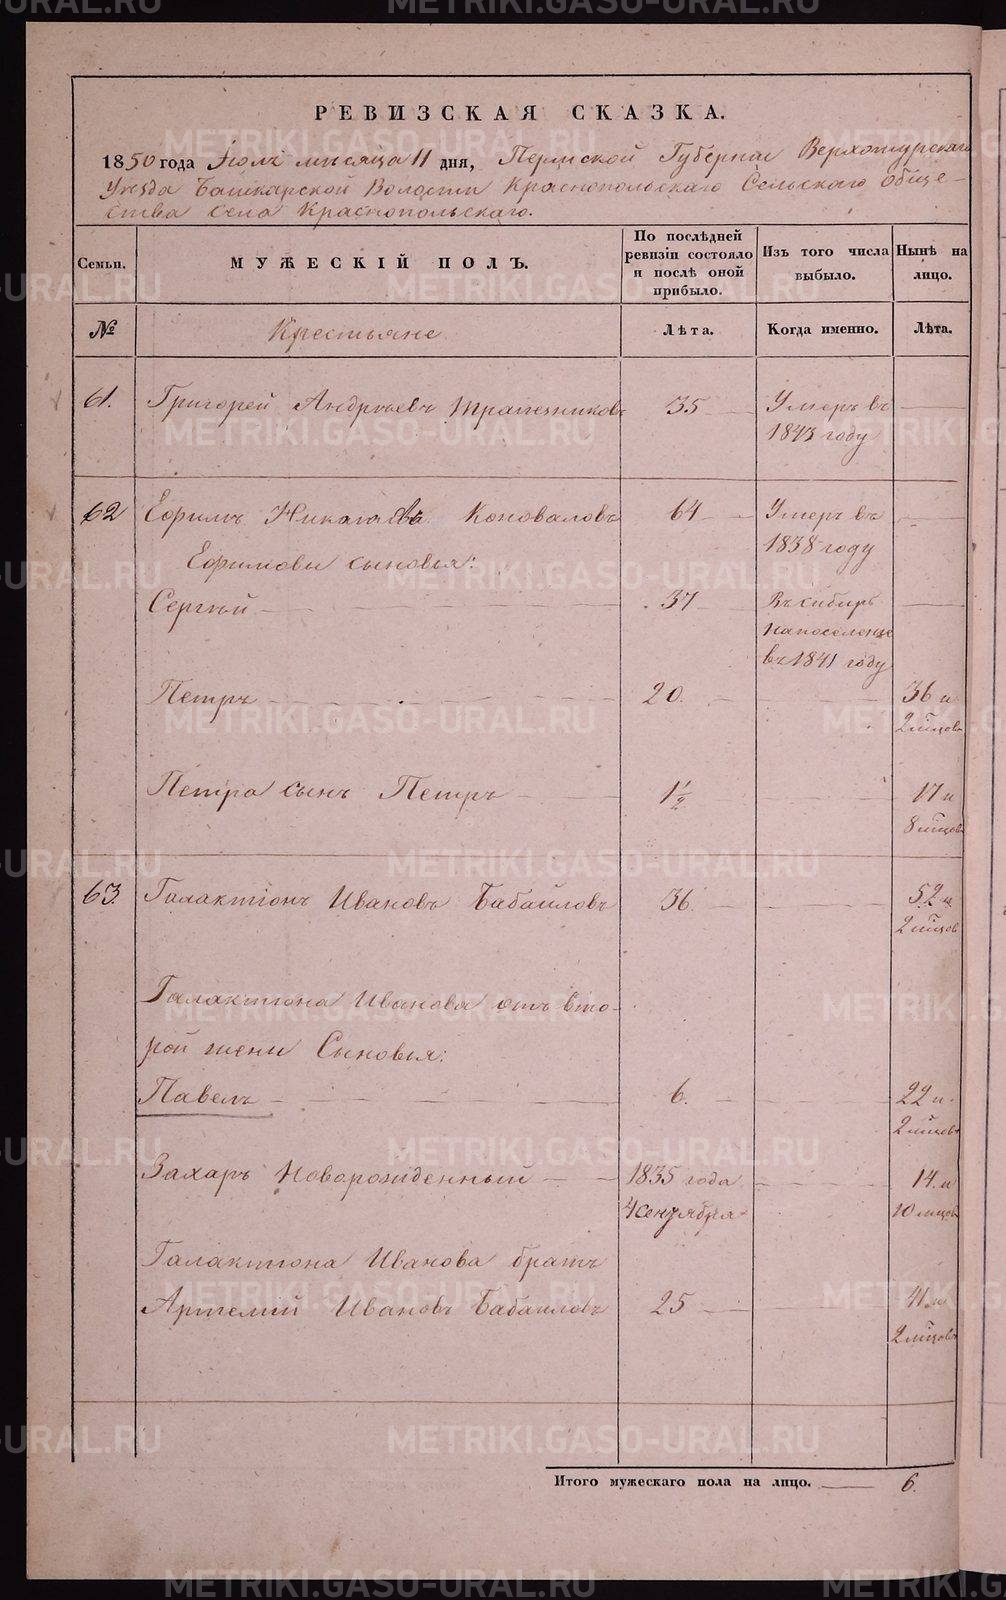 РЕВИЗСКАЯ СКАЗКА.
1850 года Іюль мѣсяца 11 дня, Пермской Губерніи Верхотурскаго
Уѣзда Башкарской Волости Краснопольскаго Сельскаго Обще-
ства села Краснопольскаго.
Семьи. МУЖЕСКІЙ ПОЛЪ. По послѣдней ревизіи состояло и послѣ оной прибыло. Изъ того числа выбыло. Нынѣ на лицо.
№ Крестьяне Лѣта. Когда именно. Лѣта.
61. Григорей Андреевъ Трапезниковъ 35 Умеръ въ
1843 году
62 Ефимъ Коноваловъ 64 Умеръ въ
1838 году
Ефимовы сыновья:
Сергѣй 37 Въ сибирь
на поселение
въ 1841 году
Петръ 20. 36 и
2 мѣсяцовъ
Петра сынъ Петръ 1 1/2 17 и
8 мѣсяцовъ
63. Галактіонъ Ивановъ Бабаиловъ 36. 52 и
2 мѣсяцовъ
Галактиона Иванова отъ вто-
рой жены Сыновья:
Павелъ 6. 22 и
2 мѣсяцовъ
Захаръ Новорожденный 1835 года 14 и
4 сентября 10 мѣсяцовъ
Галактиона Иванова братъ
Артемій Ивановъ Бабаиловъ 25 41 и
2 мѣсяцовъ
Итого мужескаго пола на лицо. 6.
METRIKI.GASO-URAL.RU